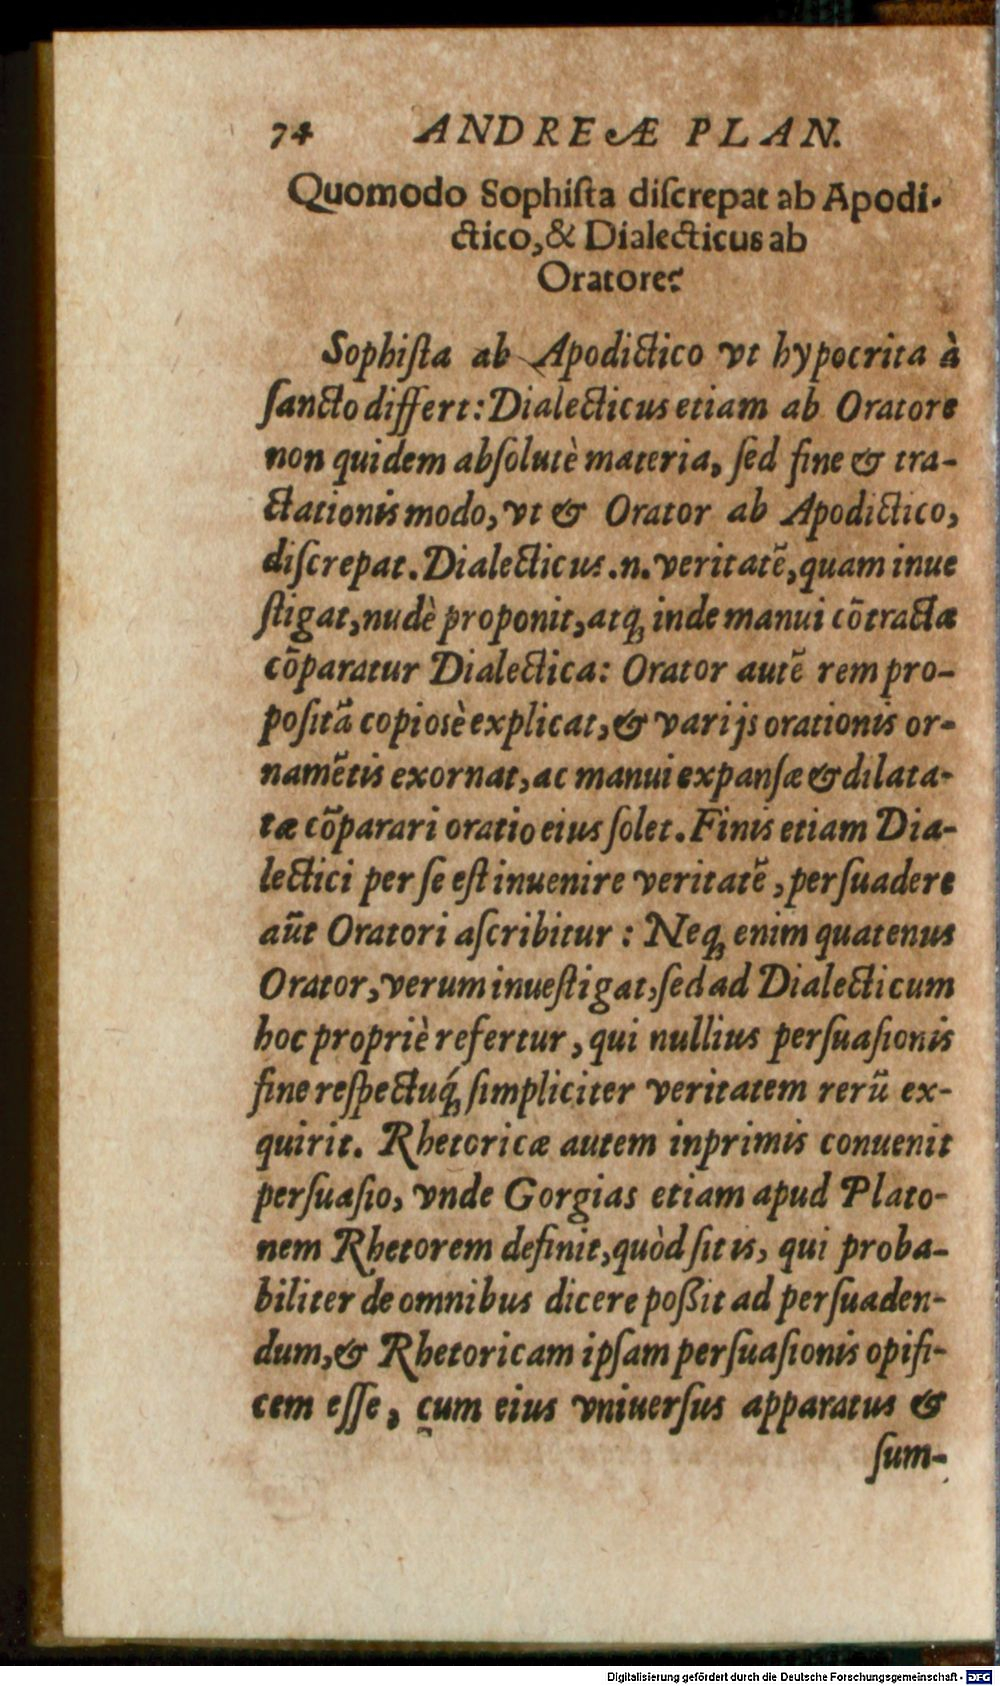 74 ANDREÆ PLAN.
Quomodo Sophiſta diſcrepat ab Apodi-
ctico, & Dialecticus ab
Oratore?
Sophiſta ab Apodictico vt hypocrita à
ſancto differt: Dialecticus etiam ab Oratore
non quidem abſolutè materia, ſed fine & tra-
ctationis modo, vt & Orator ab Apodictico,
diſcrepat. Dialecticus .n. veritatẽ, quam inue
ſtigat, nudè proponit, atq; inde manui cõtractæ
cõparatur Dialectica: Orator autẽ rem pro-
poſitã copiosè explicat, & varijs orationis or-
namẽtis exornat, ac manui expanſæ & dilata-
tæ cõparari oratio eius ſolet. Finis etiam Dia-
lectici per ſe eſt inuenire veritatẽ, perſuadere
aũt Oratori aſcribitur: Neq; enim quatenus
Orator, verum inueſtigat, ſed ad Dialecticum
hoc propriè refertur, qui nullius perſuaſionis
fine reſpectuq́; ſimpliciter veritatem rerũ ex-
quirit. Rhetoricæ autem inprimis conuenit
perſuaſio, vnde Gorgias etiam apud Plato-
nem Rhetorem definit, quòd ſit is, qui proba-
biliter de omnibus dicere poßit ad perſuaden-
dum, & Rhetoricam ipſam perſuaſionis opifi-
cem eſſe, cum eius vniuerſus apparatus &
ſum-
Digitalisierung gefördert durch die Deutsche Forschungsgemeinschaft - DFG